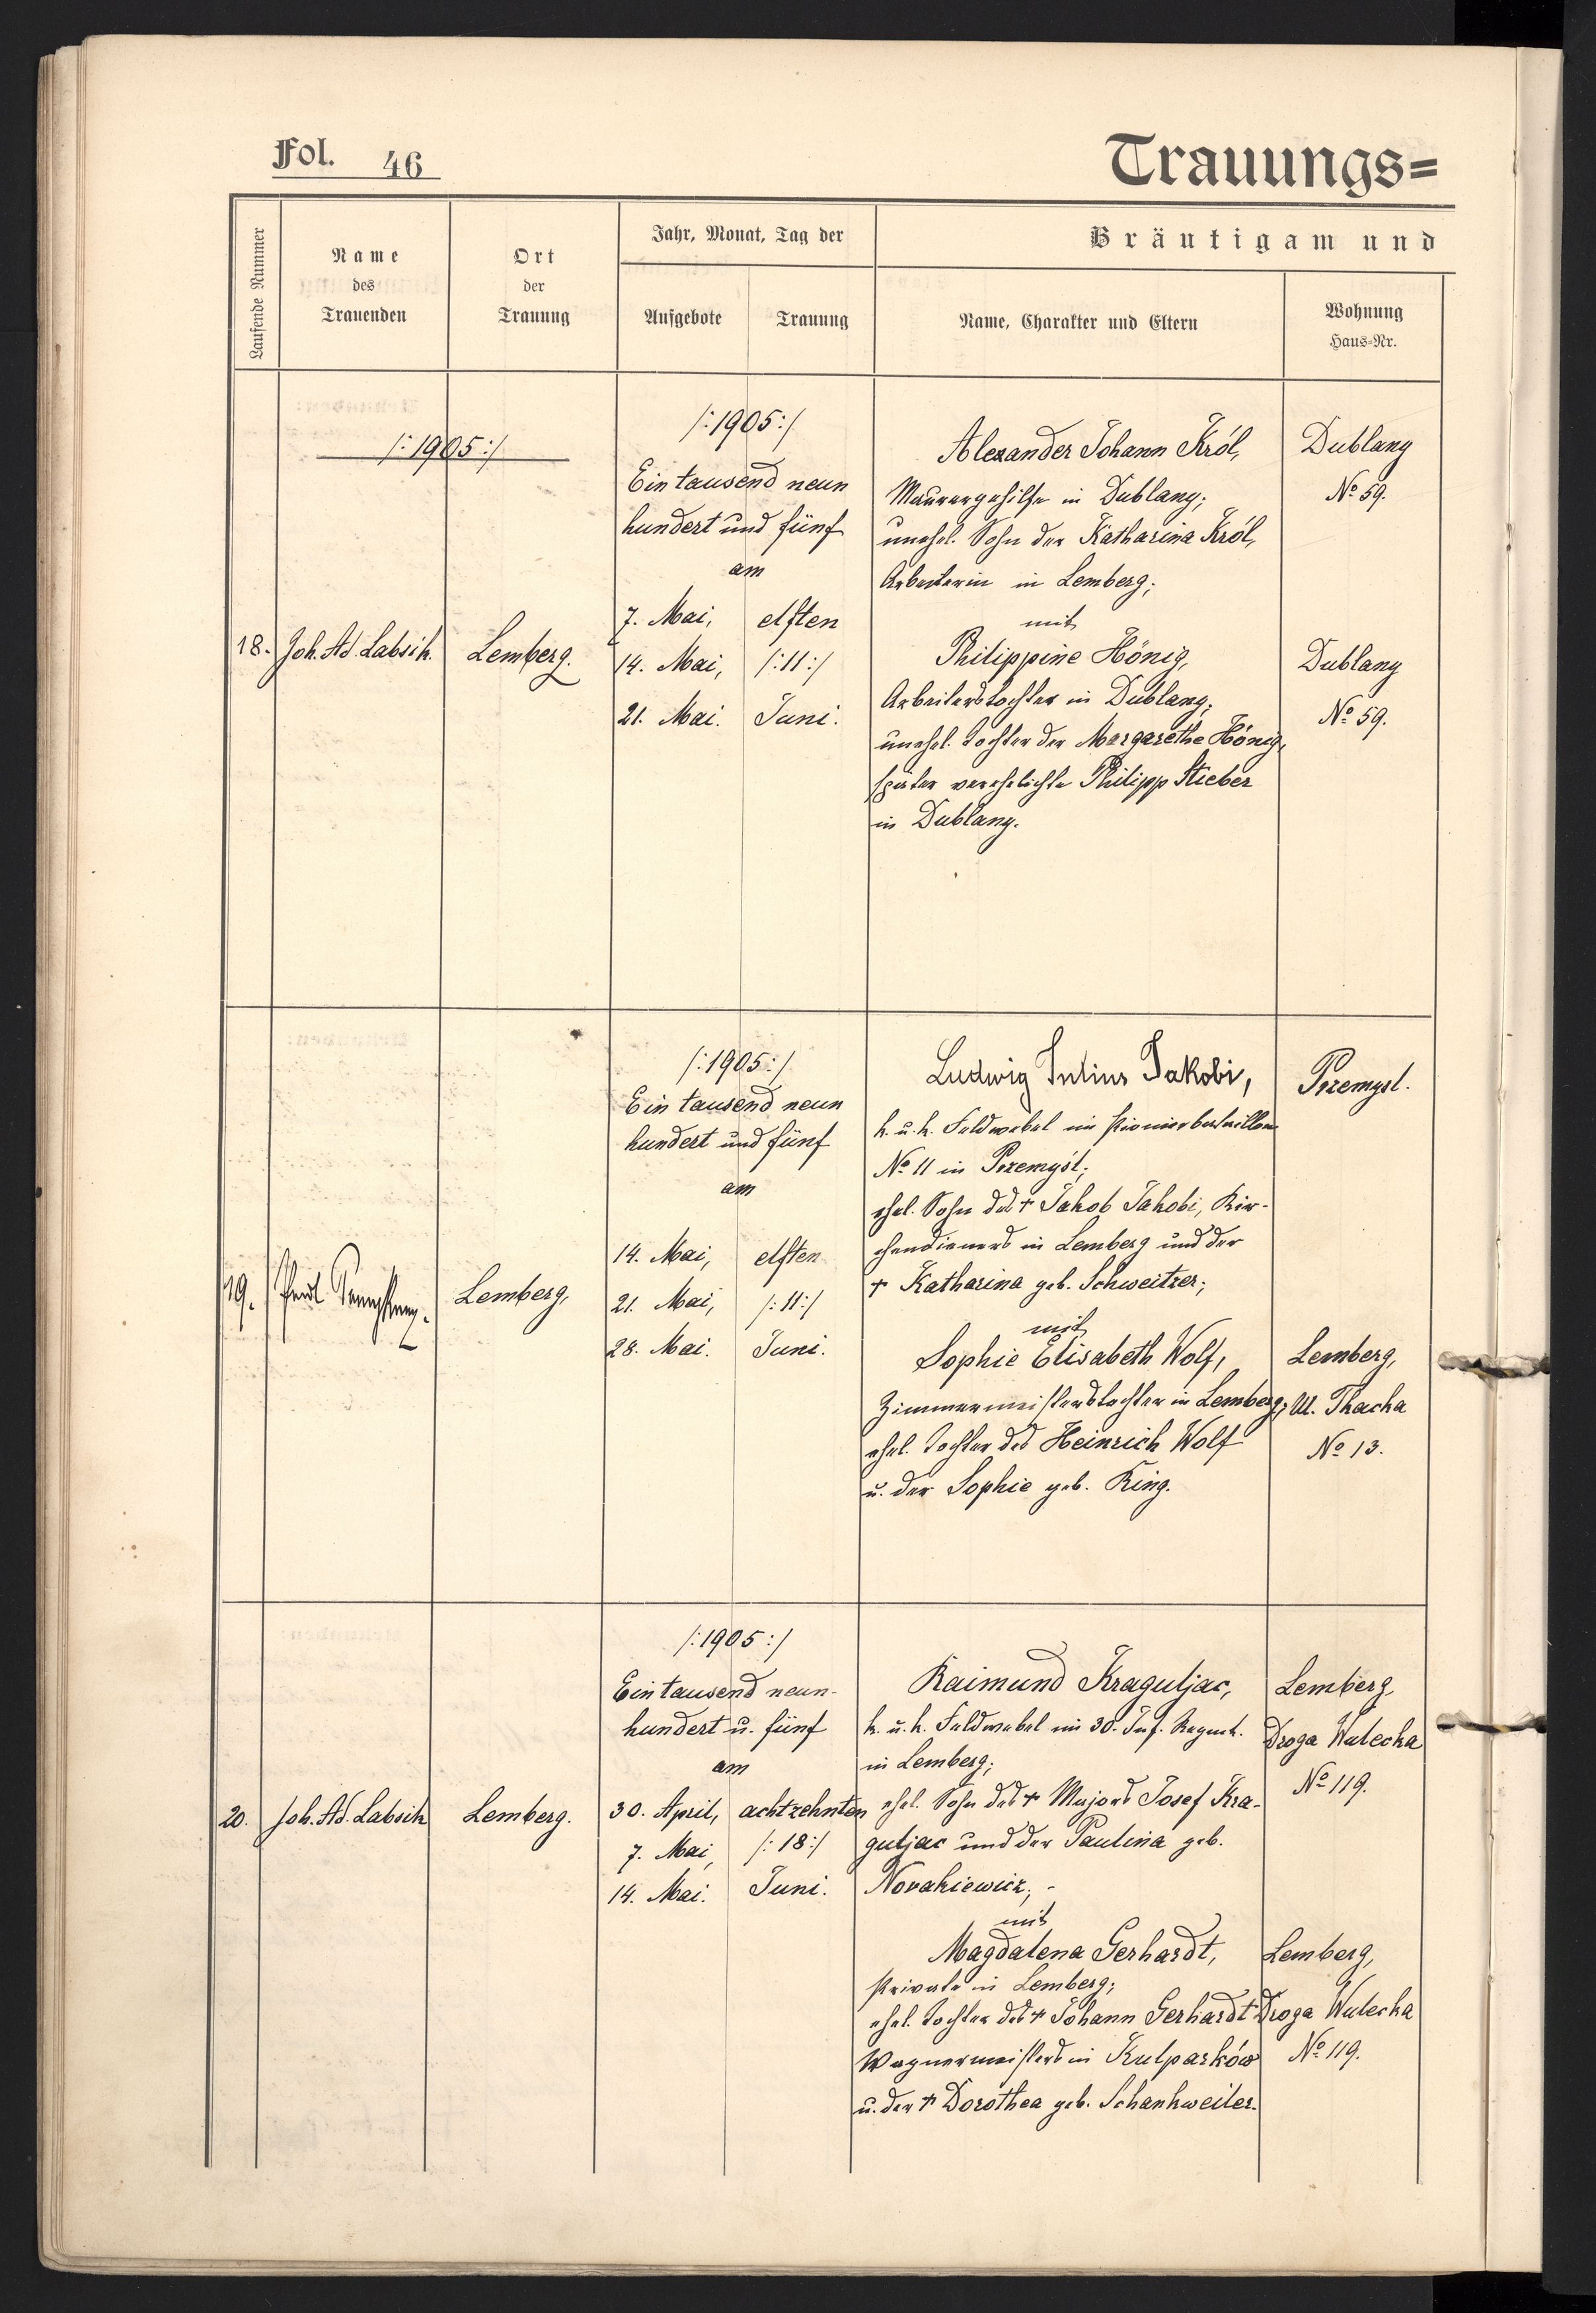 Fol. 46
Trauungs=
Laufende Nummer
Name
des
Trauenden
Ort
der
Trauung
Jahr, Monat, Tag der
Aufgebote
Trauung
Bräutigam und
Name, Charakter und Eltern
Wohnung
Haus=Nr.
/:1905:/
18.
Joh. Ad. Labsik.
Lemberg.
/:1905:/
Ein tausend neun
hundert und fünf
am
7. Mai,
14. Mai,
21. Mai.
elften
/:11:/
Juni.
Alexander Johann Król,
Maurergehilfe in Dublany;
unehel. Sohn der Katharina Król,
Arbeiterin in Lemberg;
mit
Philippine Hönig,
Arbeiterstochter in Dublany;
unehel. Tochter der Margarethe Hönig,
später verehelichte Philipp Stieber
in Dublany.
Dublany
No 59.
Dublany
No 59.
19.
Lemberg,
/:1905:/
Ein tausend neun
hundert und fünf
am
14. Mai,
21. Mai,
28. Mai.
elften
/:11:/
Juni.
Ludwig Julius Jakobi,
k. u. k. Feldwebel im Pionierbataillon
No 11 in Przemyśl;
ehel. Sohn des † Jakob Jakobi, Kir-
chendieners in Lemberg und der
† Katharina geb. Schweitzer;
mit
Sophie Elisabeth Wolf,
Zimmermeisterstochter in Lemberg;
ehel. Tochter des Heinrich Wolf
u. der Sophie geb. King.
Przemysl.
Lemberg,
Ul. Tkacka
No 13.
20.
Joh. Ad. Labsik
Lemberg.
/:1905:/
Ein tausend neun-
hundert u. fünf
am
30. April,
7. Mai,
14. Mai.
achtzehnten
/:18:/
Juni.
Raimund Kraguljac,
k. u. k. Feldwebel im 30. Inf. Regmt.
in Lemberg;
ehel. Sohn des † Majors Josef Kra-
guljac und der Paulina geb.
Novakiewicz; -
mit
Magdalena Gerhardt,
Private in Lemberg;
ehel. Tochter des † Johann Gerhardt
Wagnermeisters in Kulparków
u. der † Dorothea geb. Schankweiler.
Lemberg,
Droga Wulecka
No 119.
Lemberg,
Droga Wulecka
No 119.